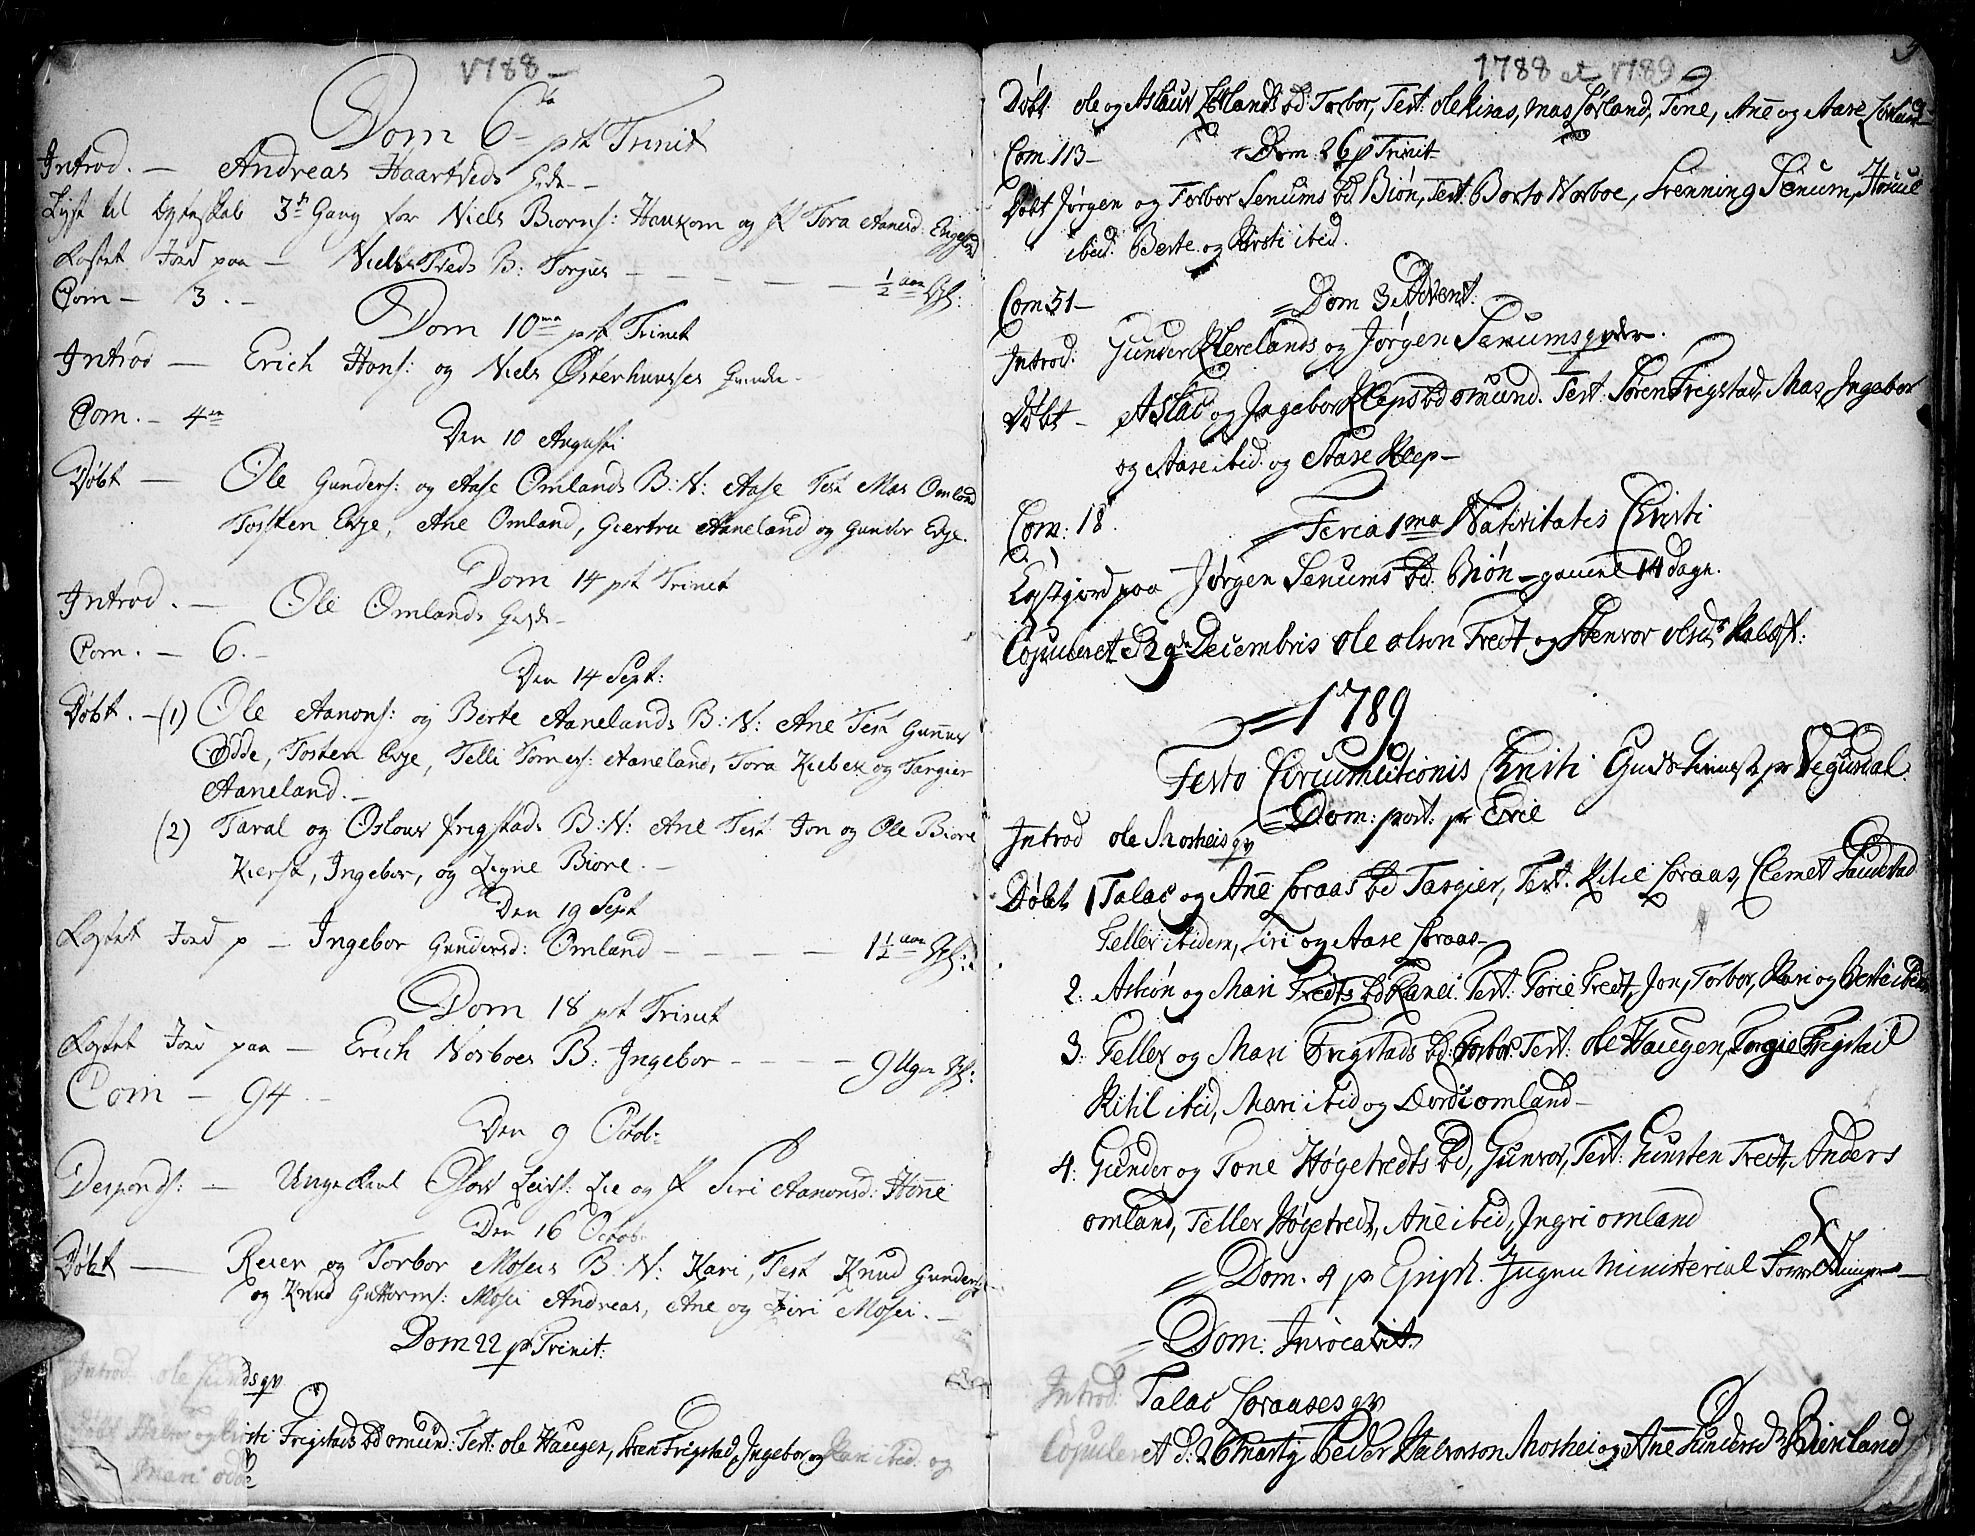 1788 -
Dom 6ta pst Trinit
Introd. - Andreas Haartveds
Lyst til Ægteskab 3de Gang for Niels Biorns: Haukom og P Tora Aanesd:
Kastet Jord paa - Niels Treds B: Torjus - - - - 1/2 Aar Gl:
Com - 3. -
Dom 10ma pst Trinit
Introd - Erich Hons: og Niels Østerhuusses Qvinder -
Com. - 4
Den 10 Augusti
Døbt - Ole Gunders: og Aase Omlands B: N: Aase Test Mas Omland
Tosten Evje, Ane Omland, Giertru Aaneland og Gunder Evje.
Dom 14 pst Trinit
Introd. - Ole Omlands
Com. - 6. -
Den 14 Sept:
Døbt. - (1) Ole Aanons: og Berte Aanelands B: N: Ane Test Gunnus
Odde, Tosten Evje, Telli Tomes: Aaneland, Tora Kieber og Targier
Aaneland. -
(2) Taral og Oslour Frigstads B: N: Ane Test Jon og Ole Biore
Kierst, Ingebor, og Ligne Biore. -
Den 19 Sept
Kastet Jord p - Ingebor Gundersd: Omland - - - - 1 1/2 Aar Gl:
Dom 18 pst Trinit
Kastet Jord paa - Erich Norboes B: Ingebor - - - 9 Uger Gl:
Com - 94 -
Den 9 Octob:
Desponds: - Unge Karl Olav Leivs: Lie og P Siri Aanonsd: Honne
Den 16 Octob
Døbt - Reier og Torbor Moseis B: N: Kari, Test Knud Gunders:
og Knud Guttorms: Mosei Andreas, Ane og Siri Mosei. -
Dom 22 p Trinit:
Introd: ole qv
Døbt og Frigstads bd omund: Test: ole Haugen, Frigstad, Ingebor og Kari ibid. og
Mari odde
1788 et 1789
Døbt ole og Aslaur Lørlands bd: Torbor, Test: ole, mas Lørland, Tone, Ane og Aase Lørland
Com 113 - Dom 26 p Trinit
Døbt Jørgen og Torbor Senums bd Biøn, Test. Borto Norboe, Senum,
ibid: Berte og Kirsti ibid.
Com 51 - Dom 3 Advent:
Introd: Gunder Klevelands og Jørgen Senums qvder.
Døbt - Aslac og Ingebor Kleps bd omund. Test: Søren Frigstad, Mas, Ingebor
og Aase ibid. og Aase Klep -
Com: 18. Feria 1ma Nativitatis Christi
Kast jord paa Jørgen Senums bd. Biøn - gamel 14 dage.
Copuleret d: 29de Decembris ole olson Tredt og Stenvor olsd:
1789
Festo Circumcitionis Christi Gudstienest pr Vegusdal
Dom: post: pr Evie
Introd ole Mosheis qv
Døbt 1 Talac og Ane Loraas bd Targier, Test: Kitil Loraas, Clemet
Tellev ibidem, Siri og Aase Loraas -
2. Asbiøn og Mari Tredts bd Ranei Test: Torie Tredt, Jon, Torbor, Kari og Berte ibidem
3. Tellev og Mari Frigstads bd: Torbor Test: ole Haugen, Torgie Frigstad
Kitil ibid, Mari ibid og Dordi omland -
4. Gunder og Tone Høgetredts bd, Gunvor, Test: Gunsten Tredt, Anders
omland, Tellev Høgetredt, Ane ibid, Ingri omland
Dom. 4 p Epiph. Ingen Ministerial
Dom: Invocavit
Introd Talac Loraases qv
Copuleret d: 26 marty Peder Halvorson Moshei og Ane Gundersd: Bienland